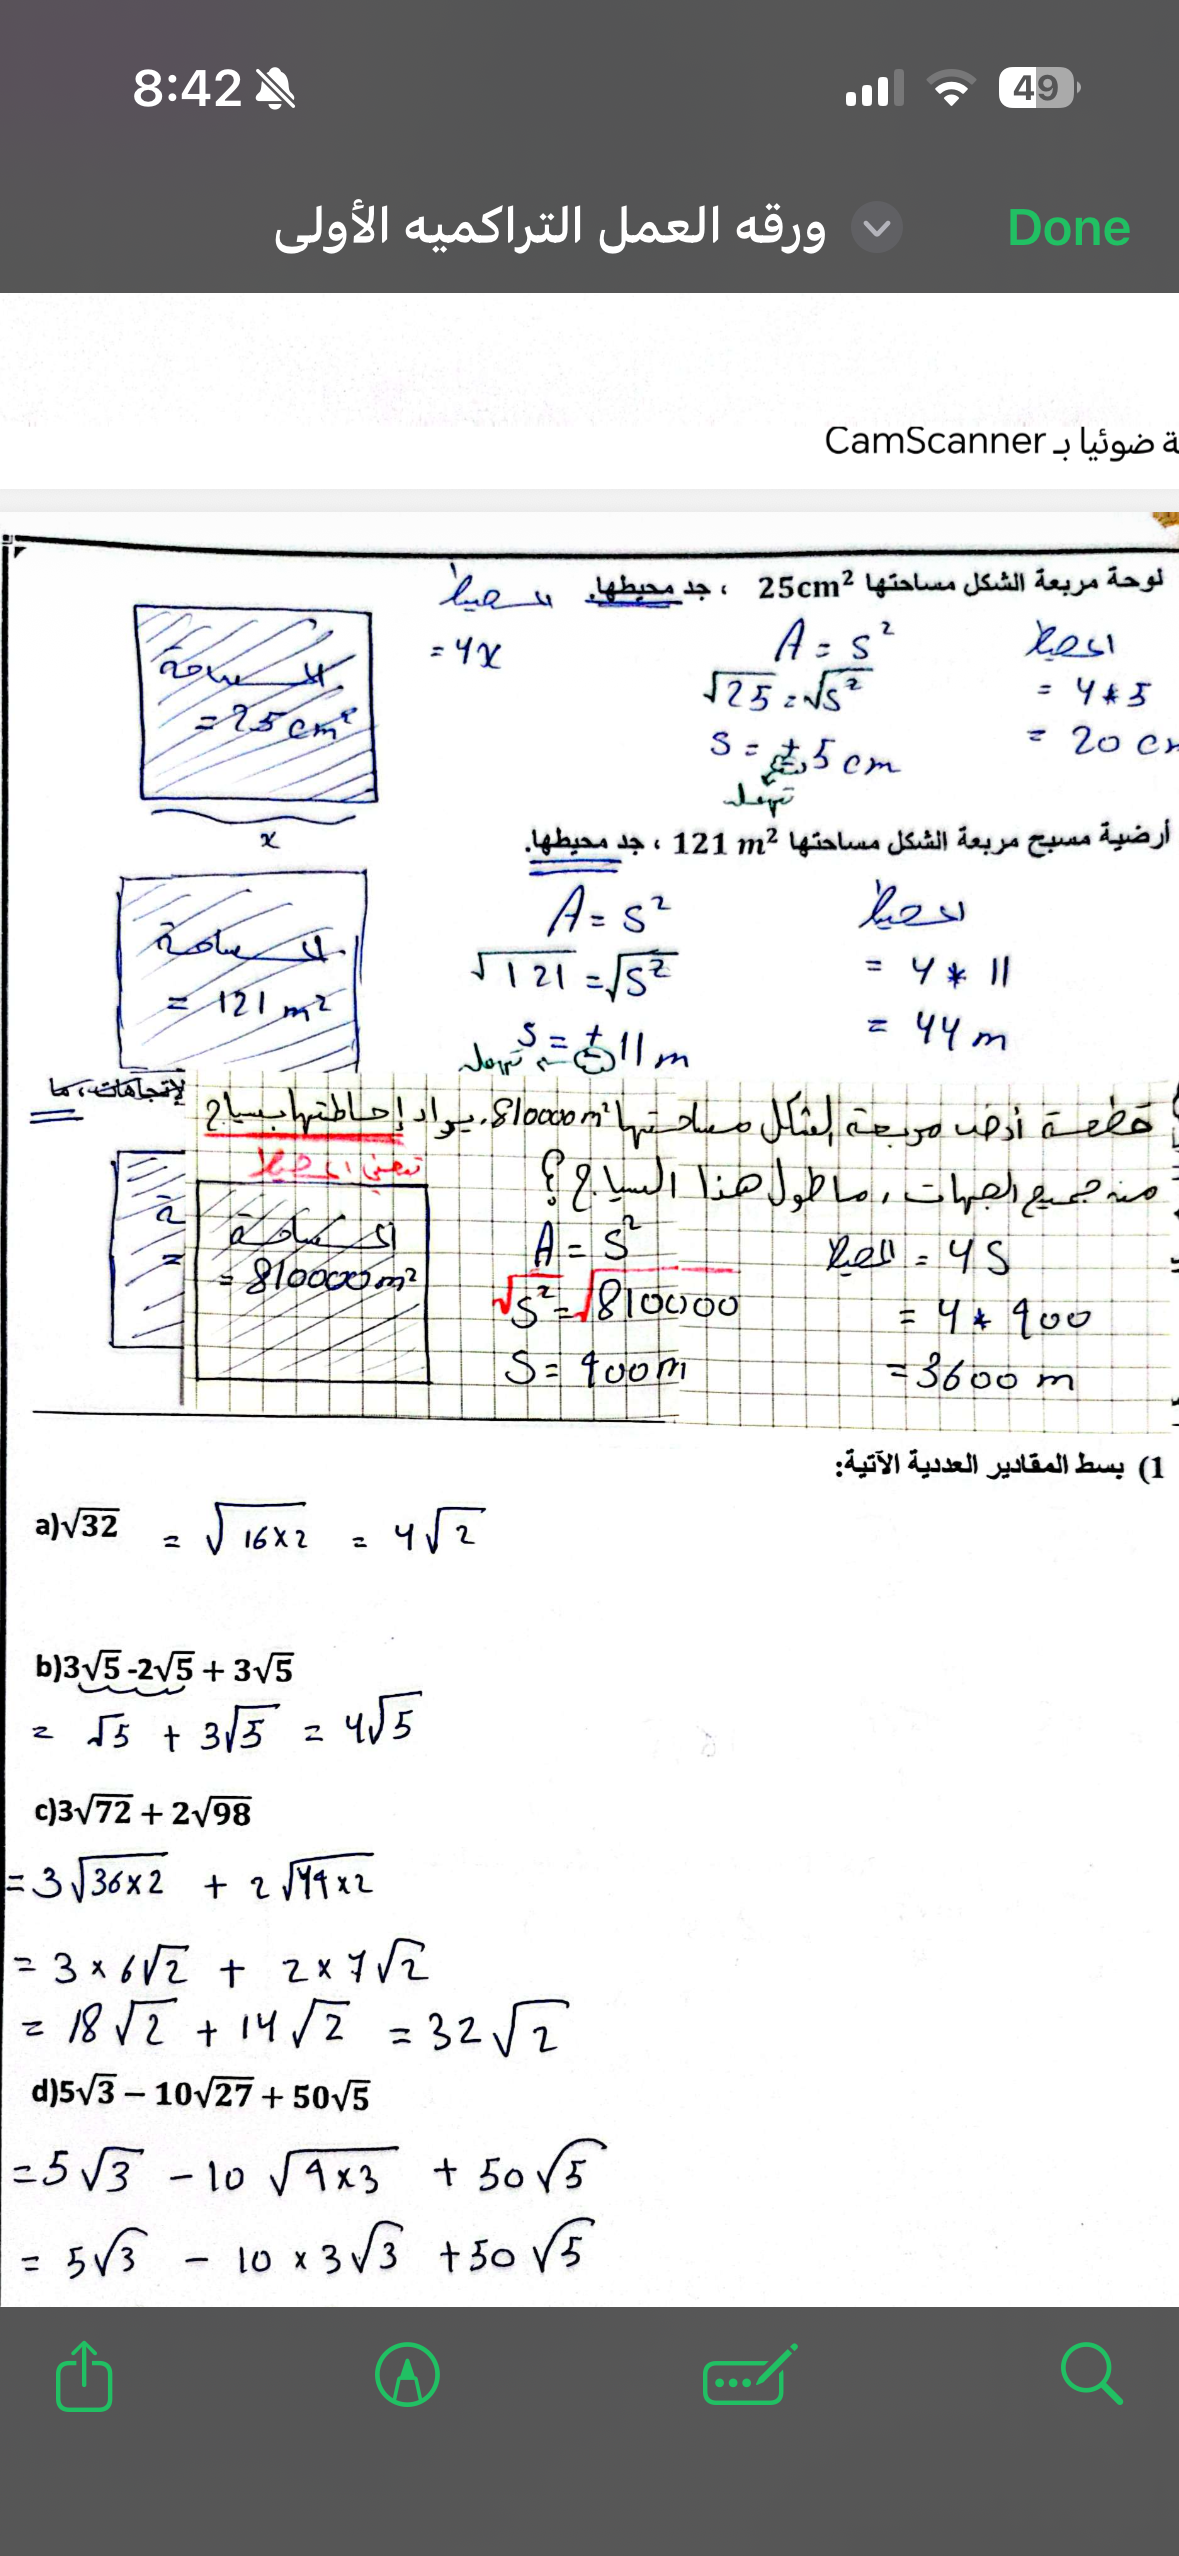 8:42
49
ورقه العمل التراكميه الأولى
Done
ة ضوئيا بـ CamScanner
لوحة مربعة الشكل مساحتها 25cm² ، جد محيطها.
المحيط
= 4x
A = s²
√25 = √s²
s = ± 5 cm
تهمل
المحيط
= 4 * 5
= 20 cm
المساحة
= 25 cm²
x
أرضية مسبح مربعة الشكل مساحتها 121 m² ، جد محيطها.
المساحة
= 121 m²
A = s²
√121 = √s²
s = ± 11 m
تهمل
المحيط
= 4 * 11
= 44 m
لإتجاهات، ما
قطعة أرض مربعة الشكل مساحتها 810000m². يراد إحاطتها بسياج
تعني المحيط
من جميع الجهات، ما طول هذا السياج؟
المساحة
= 810000m²
A = S²
√S² = √810000
S = 900m
المحيط = 4S
= 4 * 900
= 3600 m
1) بسط المقادير العددية الآتية:
a)√32 = √16×2 = 4√2
b)3√5 -2√5 + 3√5
= √5 + 3√5 = 4√5
c)3√72 + 2√98
= 3√36×2 + 2√49×2
= 3 × 6√2 + 2 × 7√2
= 18√2 + 14√2 = 32√2
d)5√3 − 10√27 + 50√5
= 5√3 − 10√9×3 + 50√5
= 5√3 − 10 × 3√3 + 50√5